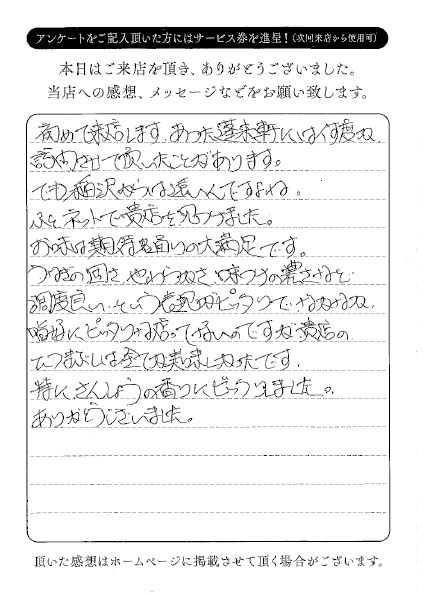 アンケートをご記入頂いた方にはサービス券を進呈!(次回来店から使用可)
本日はご来店を頂き、ありがとうございました。
当店への感想、メッセージなどをお願い致します。
初めて来店します。あつた蓬来軒には何度か
訪問させて頂いたことがあります。
でも稲沢からは遠いんですよね。
ふとネットで貴店を見つけました。
お味は期待通りの大満足です。
うなぎの固さ、やわらかさ、味つけの濃さなど
調度良いという意見がピッタリで、なかなか、
嗜好にピッタリな店ってないのですが貴店の
ひつまぶしは全てが美味しかったです。
特に、さんしょうの香りにビックリしました。
ありがとうございました。
頂いた感想はホームページに掲載させて頂く場合がございます。